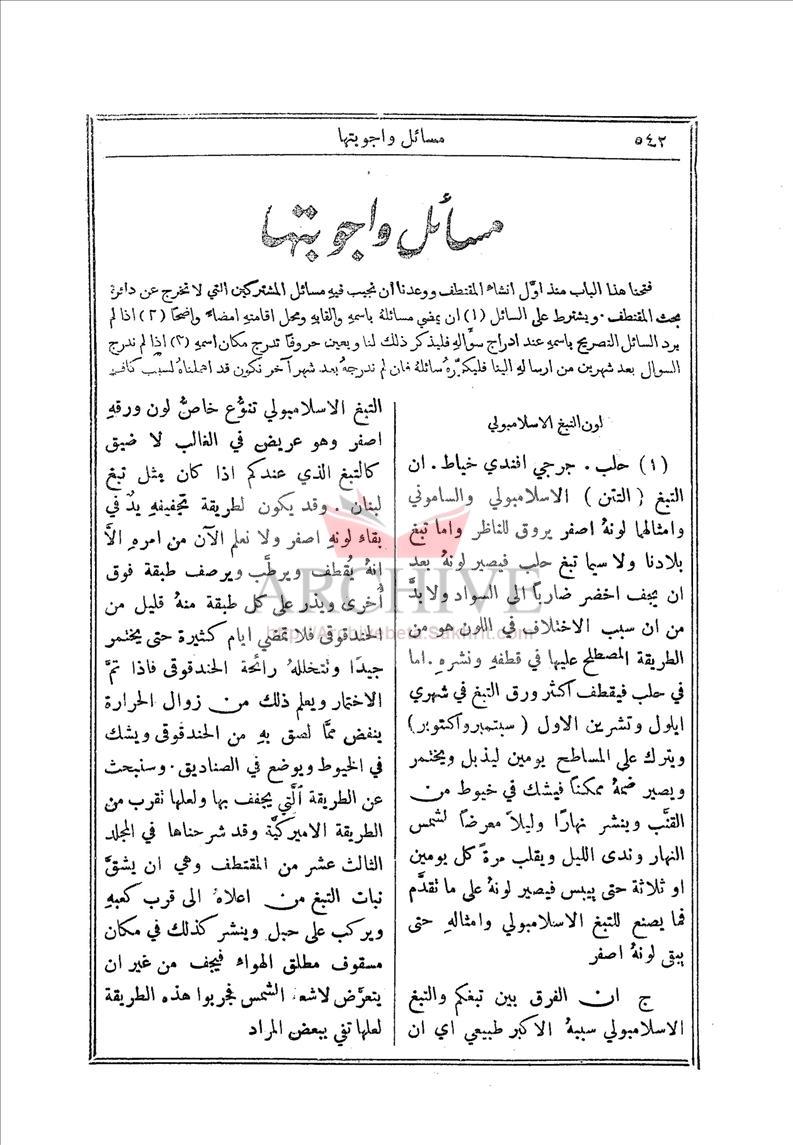 ٥٤٢
مسائل واجوبتها
مسائل واجوبتها
فتحنا هذا الباب منذ اوّل انشاء المقتطف ووعدنا ان نجيب فيهِ مسائل المشتركين التي لا تخرج عن دائرة
بحث المقتطف. ويشترط على السائل (١) ان يمضي مسائلهُ باسمهِ والقابهِ ومحل اقامتهِ امضاءً واضحًا (٢) اذا لم
يرد السائل التصريح باسمهِ عند ادراج سؤالهِ فليذكر ذلك لنا ويعين حروفًا تدرج مكان اسمهِ (٣) اذا لم ندرج
السوال بعد شهرين من ارسالهِ الينا فليكررهُ سائلهُ فان لم ندرجهُ بعد شهر آخر نكون قد اهملناهُ لسبب كافٍ
لون التبغ الاسلامبولي
(١) حلب. جرجي افندي خياط. ان
التبغ (التتن) الاسلامبولي والساموني
وامثالهما لونهُ اصفر يروق للناظر واما تبغ
بلادنا ولا سيما تبغ حلب فيصير لونهُ بعد
ان يجف اخضر ضاربًا الى السواد ولا بدَّ
من ان سبب الاختلاف في اللون هو من
الطريقة المصطلح عليها في قطفهِ ونشرهِ. اما
في حلب فيقطف اكثر ورق التبغ في شهري
ايلول وتشرين الاول (سبتمبر واكتوبر)
ويترك على المساطح يومين ليذبل ويختمر
ويصير ضمهُ ممكنًا فيشك في خيوط من
القنَّب وينشر نهارًا وليلاً معرضًا لشمس
النهار وندى الليل ويقلب مرةً كل يومين
او ثلاثة حتى ييبس فيصير لونهُ على ما تقدَّم
فما يصنع للتبغ الاسلامبولي وامثالهِ حتى
يبقى لونهُ اصفر
ج ان الفرق بين تبغكم والتبغ
الاسلامبولي سببهُ الاكبر طبيعي اي ان
التبغ الاسلامبولي تنوُّع خاصٌّ لون ورقهِ
اصفر وهو عريض في الغالب لا ضيق
كالتبغ الذي عندكم اذا كان يمثل تبغ
لبنان. وقد يكون لطريقة تجفيفهِ يدٌ في
بقاء لونهِ اصفر ولا نعلم الآن من امرهِ الاَّ
انهُ يُقطف ويرطَّب ويرصف طبقة فوق
أُخرى ويذر على كل طبقة منهُ قليل من
الحندقوقى فلا تمضي ايام كثيرة حتى يختمر
جيدًا وتتخللهُ رائحة الحندقوقى فاذا تمَّ
الاختمار ويعلم ذلك من زوال الحرارة
ينفض ممَّا لصق بهِ من الحندقوقى ويشك
في الخيوط ويوضع في الصناديق. وسنبحث
عن الطريقة الَّتي يجفف بها ولعلها تقرب من
الطريقة الاميركيَّة وقد شرحناها في المجلد
الثالث عشر من المقتطف وهي ان يشقَّ
نبات التبغ من اعلاهُ الى قرب كعبهِ
ويركب على حبل وينشر كذلك في مكان
مسقوف مطلق الهواء فيجف من غير ان
يتعرَّض لاشعة الشمس فجربوا هذه الطريقة
لعلها تفي ببعض المراد
ARCHIVE
http://Archivebeta.Sakhrit.com